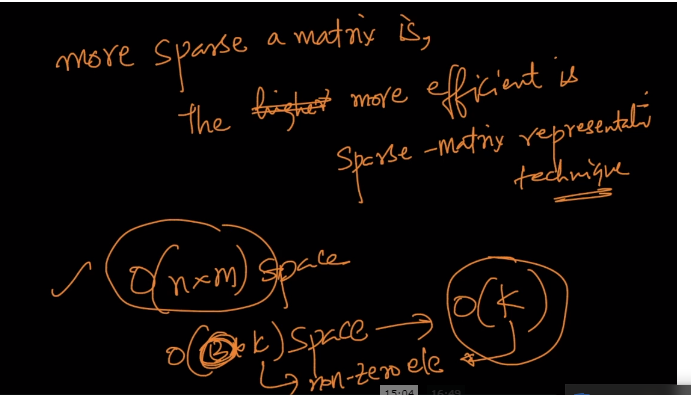 more sparse a matrix is,
the higher more efficient is
sparse-matrix representati
technique
O(n×m) space
O(k)
O(2*k) space
non-zero ele
15:04 16:49